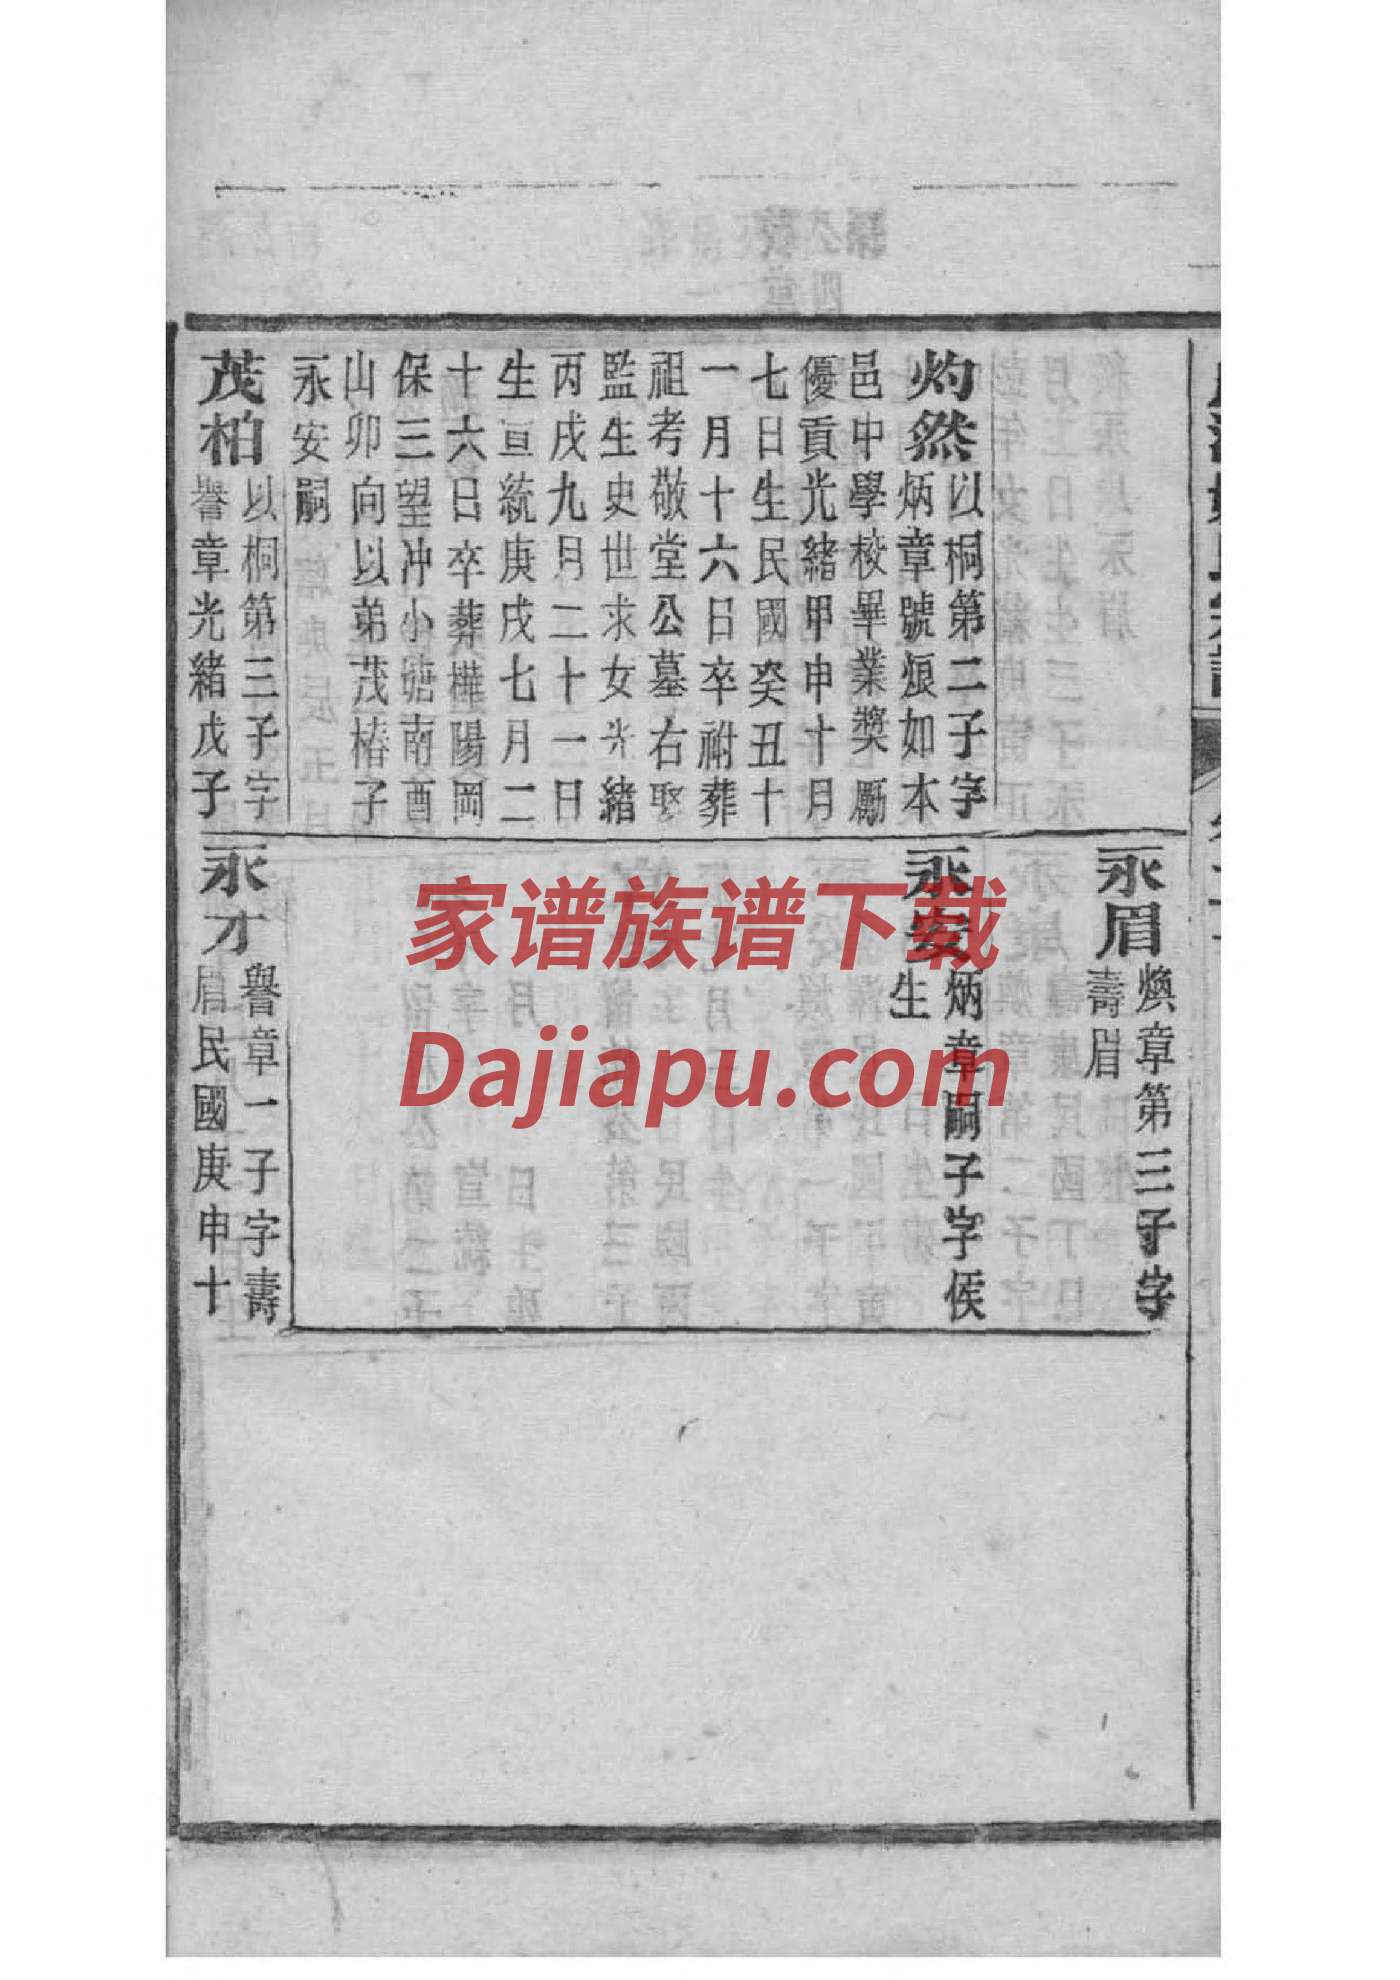 灼然
以桐第二子字
炳章號烺如本
邑中學校畢業獎勵
優貢光緒甲申十月
七日生民國癸丑十
一月十六日卒祔葬
祖考敬堂公墓右娶
監生史世求女光緒
丙戌九月二十一日
生宣統庚戌七月二
十六日卒葬樺陽岡
保三望冲小塘南酉
山卯向以弟茂椿子
永安嗣
茂柏
以桐第三子字
譽章光緒戊子
永眉
煥章第三子字
壽眉
永安
炳章嗣子字俟
生
永才
譽章一子字壽
眉民國庚申十
家谱族谱下载
Dajiapu.com